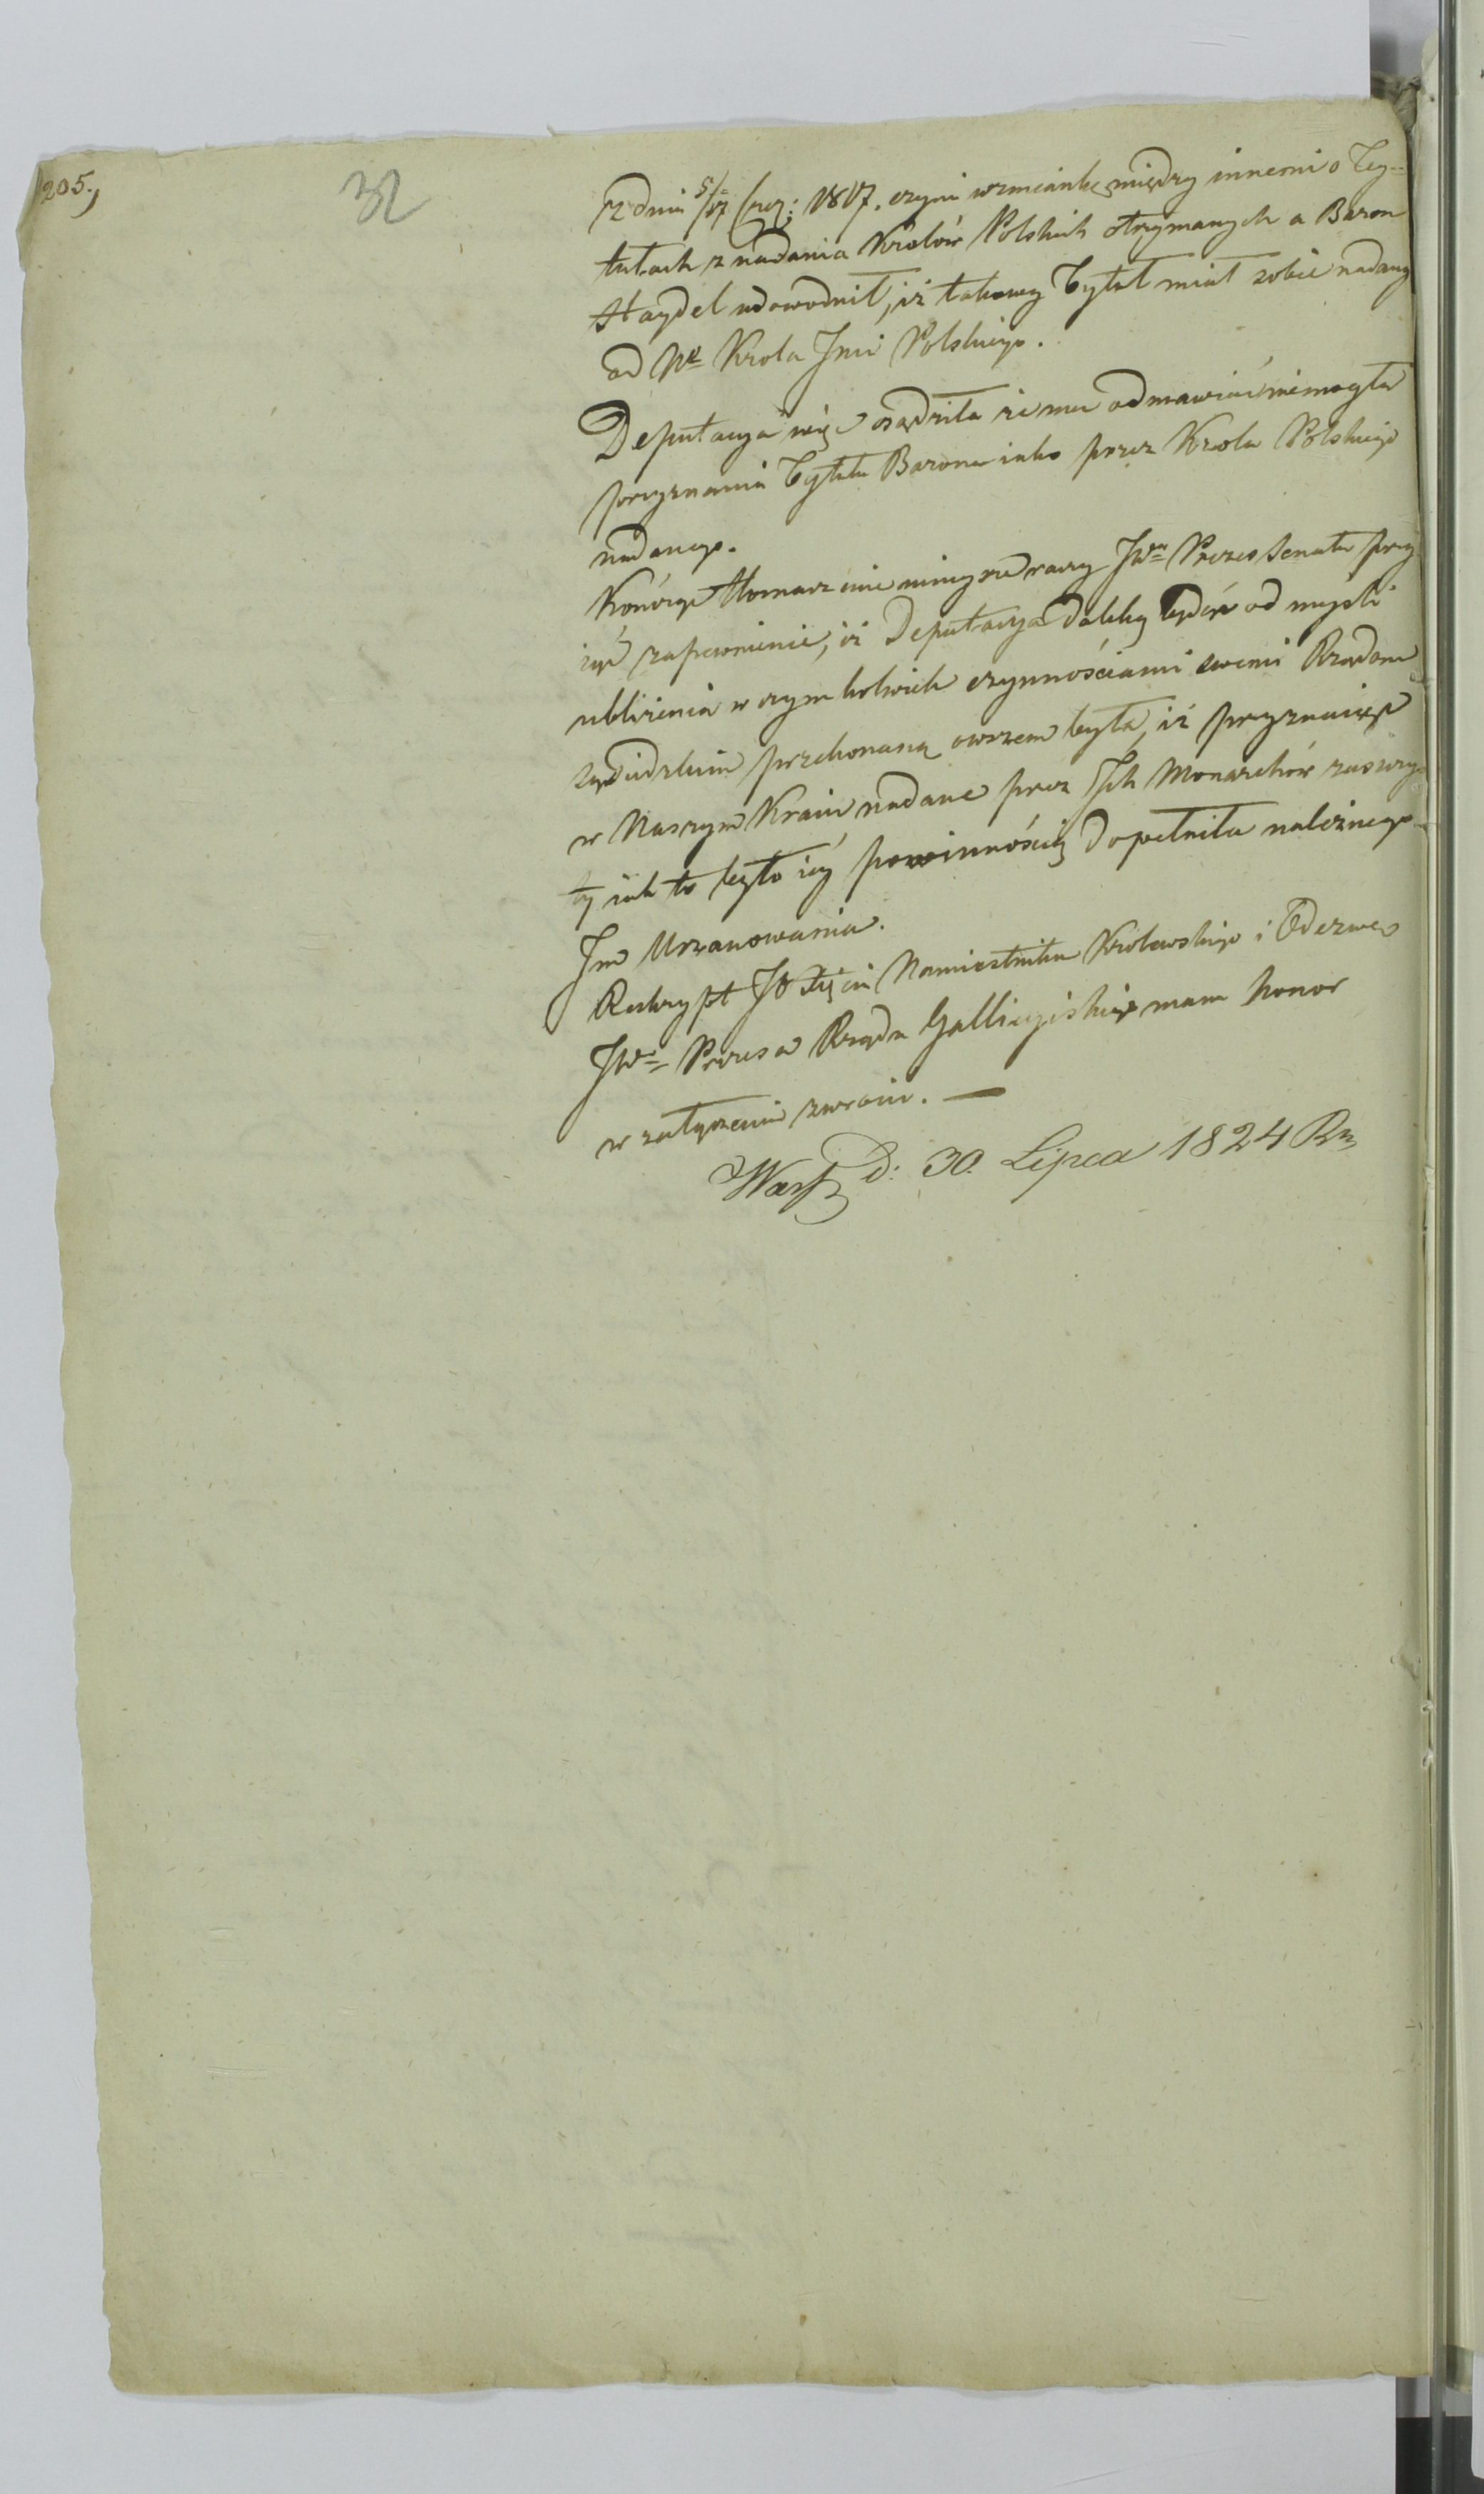 205.,
32
z dnia 5/17 Czer: 1817. czyni wzmiankę między innemi o Ty-
tułach z nadania Królów Polskich otrzymanych a Baron
Haydel udowodnił, iż takowy Tytuł miał sobie nadany
od Nº Krola Jmci Polskiego.
Deputacya więc osądziła że mu odmawiać niemogła
przyznania Tytułu Barona iako przez Krola Polskiego
nadanego.
Kończąc tłomaczenie ninieysze raczy JWn Prezes Senatu przy
iąć zapewnienie, iż Deputacya daleką będąc od myśli
ubliżenia w czymkolwiek czynnościami swemi Rządom
sąsiedzkim przekonaną owszem była, iż przyznaiąc
w Naszym Kraiu nadane przez Jch Monarchów zaszczy-
ty iak to było iey powinnością dopełniła należnego
Jm Uszanowania.
Reskrypt JO Xięcia Namiestnika Krolewskiego i Odezwę
JWo Prezesa Rządu Gallicyiskiego mam honor
w załączeniu zwrócić. —
Warsz d: 30. Lipca 1824 Rn